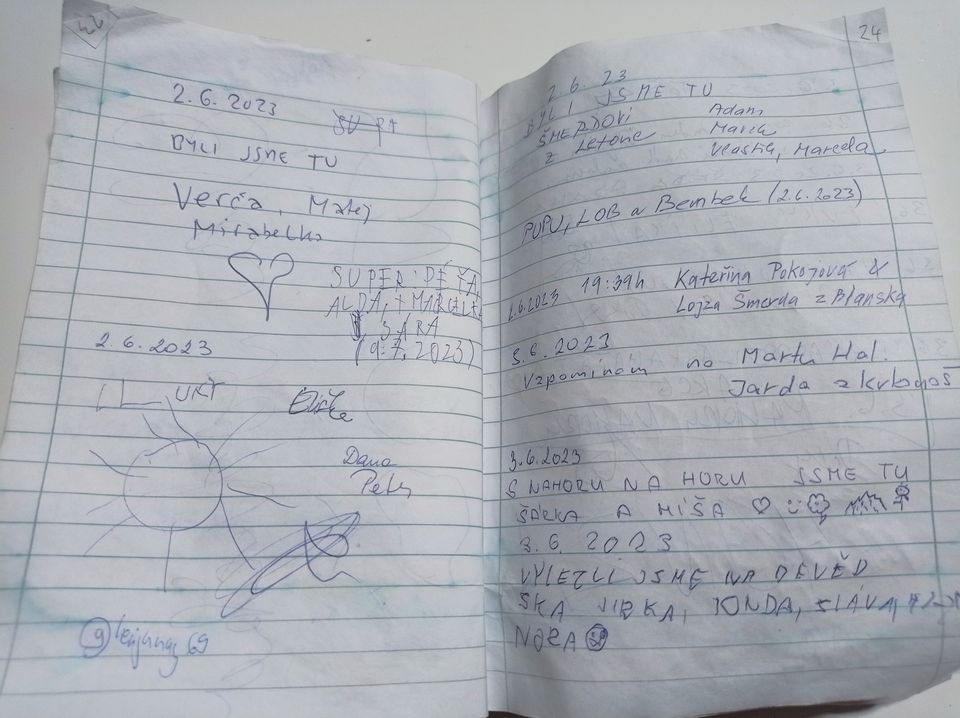 2.6.2023
BYLI JSME TU
Verča, Matěj
Mirabelka
SUPER DĚŤA,
ALDA, + MARCELKA
SÁRA
(9.7.2023)
2.6.2023
Eliška
Dana
Petr
24
2.6.23
BYLI JSME TU
ŠMERDOVI Adam
z Letovic Marek
Vlasta, Marcela
PUPU, LOB a Bembek (2.6.2023)
2.6.2023 19:39h Kateřina Pokojová &
Lojza Šmerda z Blanska
3.6.2023
Vzpomínám na Martu Hal.
Jarda z
3.6.2023
S NAHORU NA HORU JSME TU
ŠÁRKA A MÍŠA
3.6.2023
VYLEZLI JSME NA DEVĚD
SKA JIRKA, JONDA, SLÁVA,
NORA